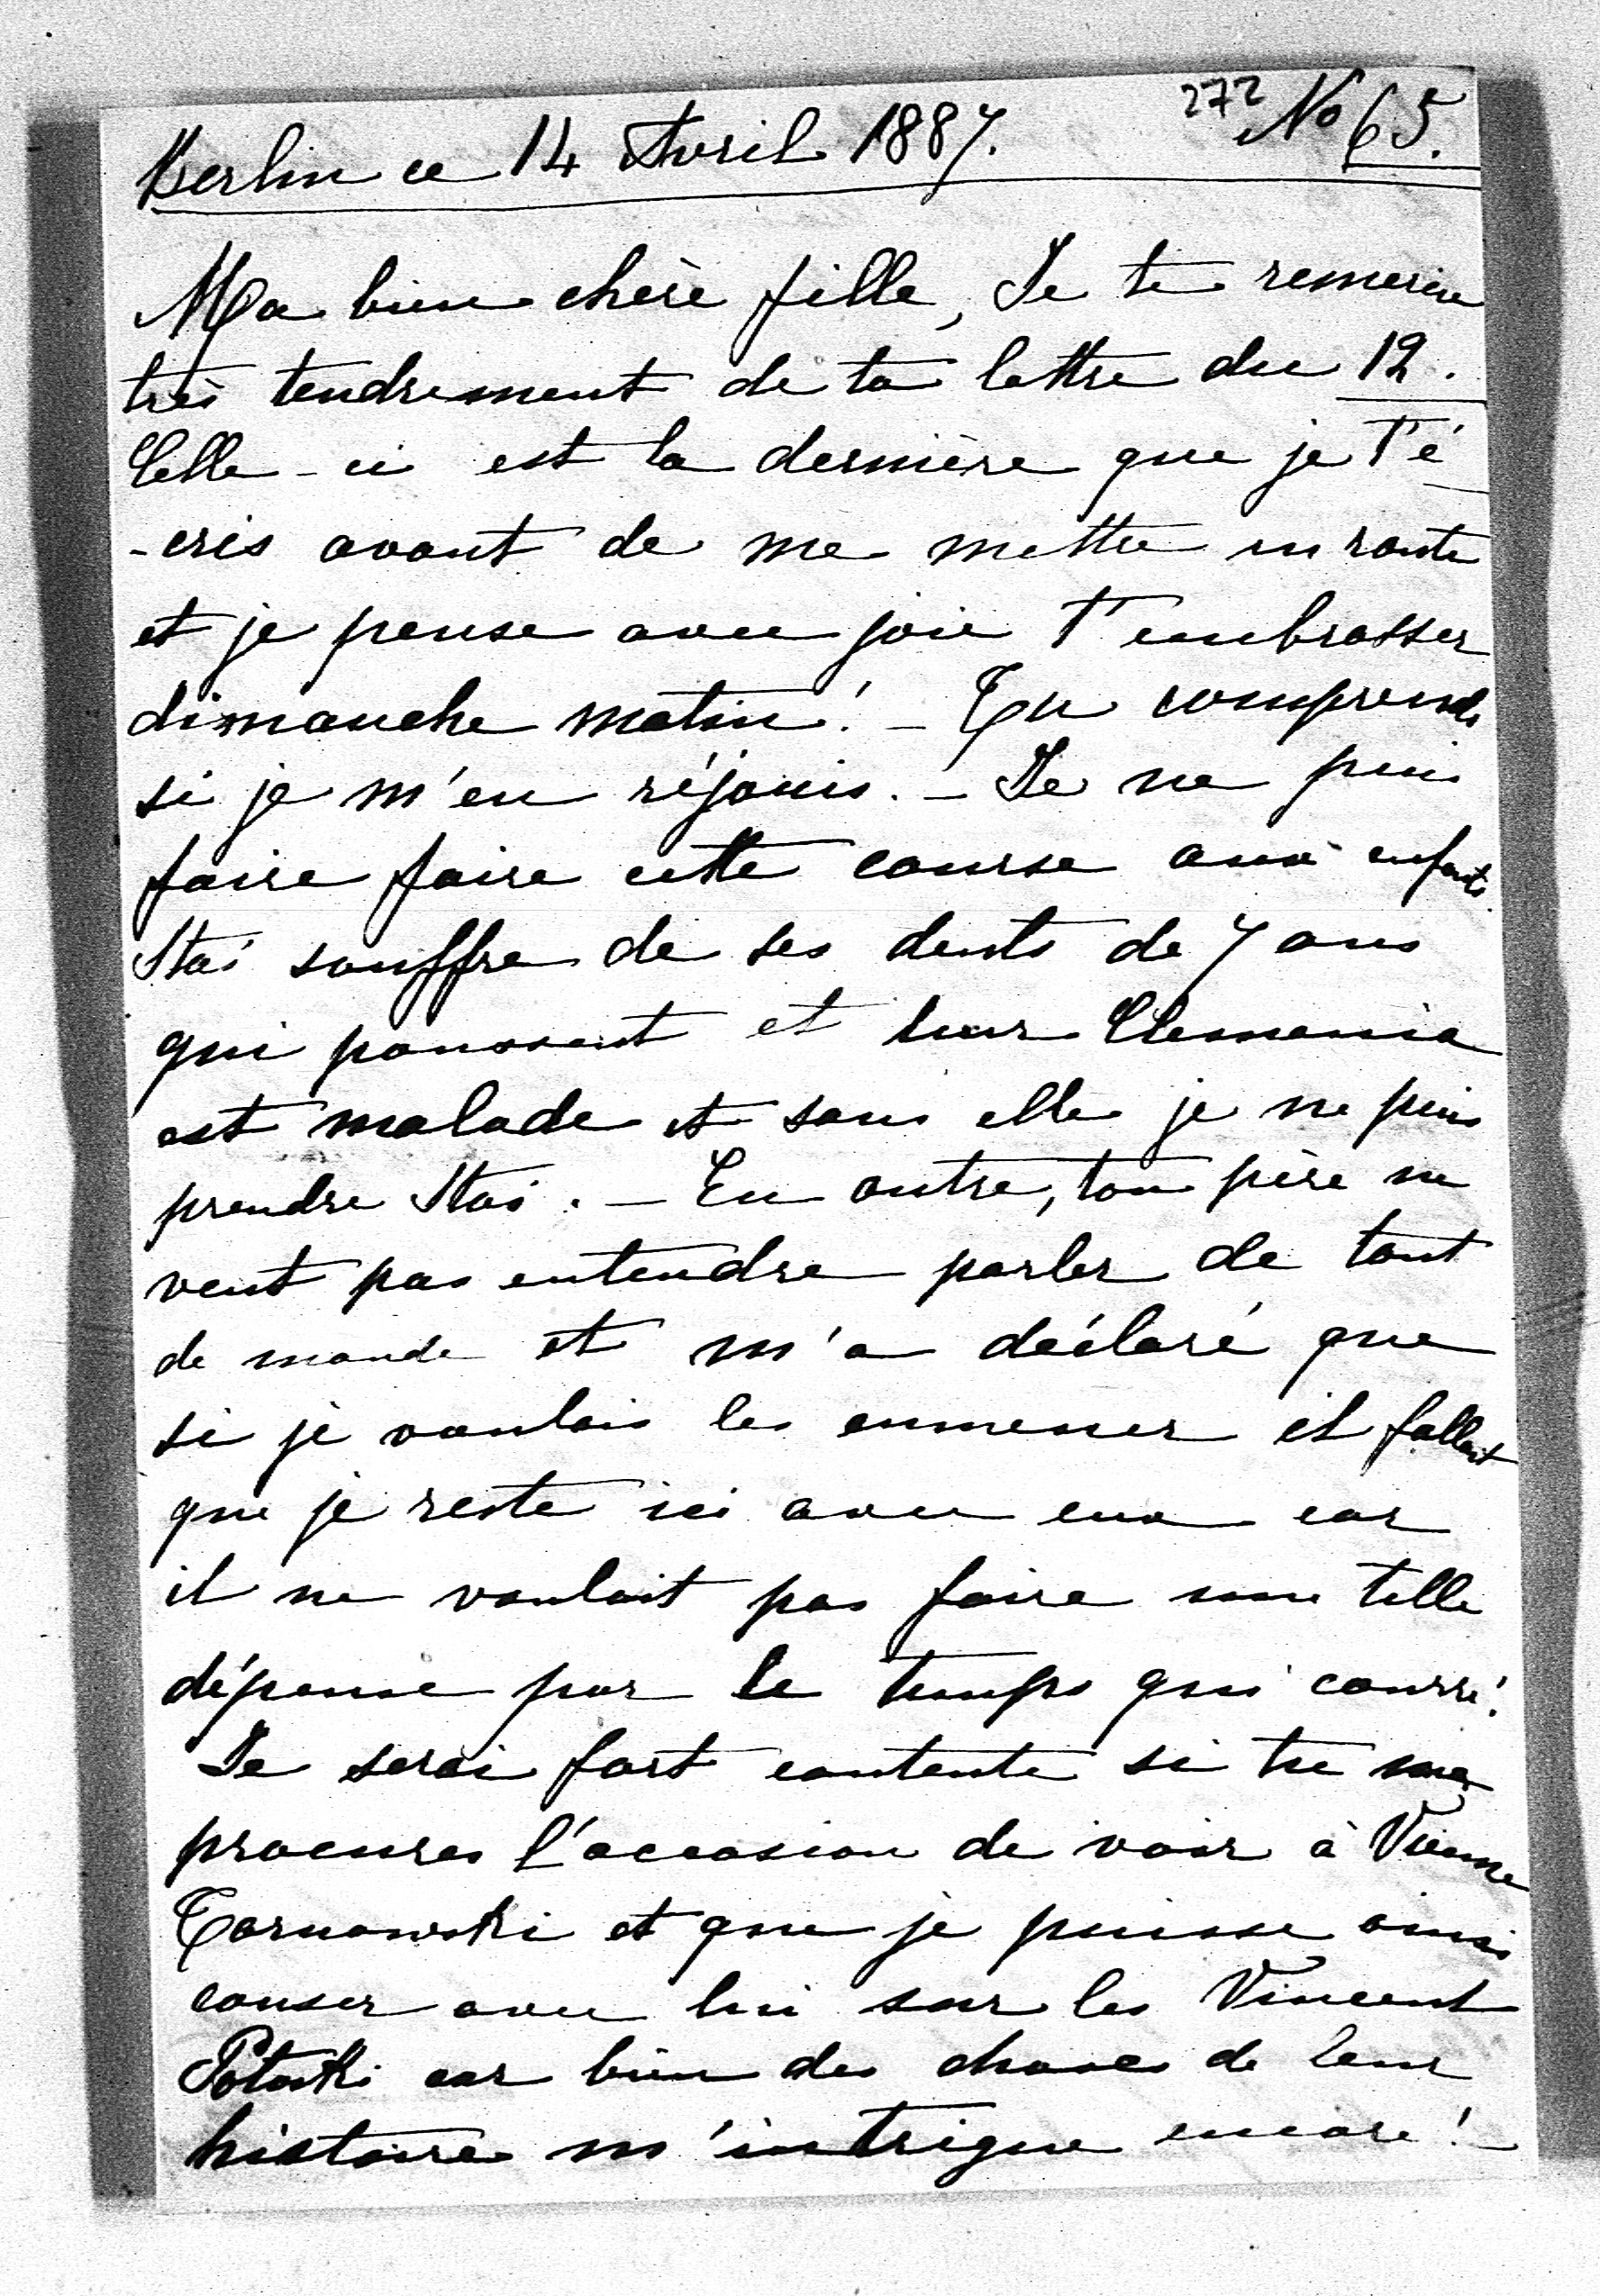 272 No 65.
Berlin ce 14 Avril 1887.
Ma bien chère fille, Je te remercie
très tendrement de ta lettre du 12.
Celle-ci est la dernière que je t'é
-cris avant de me mettre en route
et je pense avec joie t'embrasser
dimanche matin! - Tu comprends
si je m'en réjouis. - Je ne puis
faire faire cette course aux enfants.
Stas souffre de ses dents de 7 ans
qui poussent et leur
est malade et sans elle je ne puis
prendre Stas. - En outre, ton père ne
veut pas entendre parler de tant
de monde et m'a déclaré que
si je voulais les emmener il fallait
que je reste ici avec eux car
il ne voulait pas faire une telle
dépense par le temps qui courre!
Je serai fort contente si tu me
procures l'occasion de voir à Vienne
Tarnowski et que je puisse ainsi
causer avec lui sur les Vincent
Potocki car bien des choses de leur
histoire m'intrigue encore! -